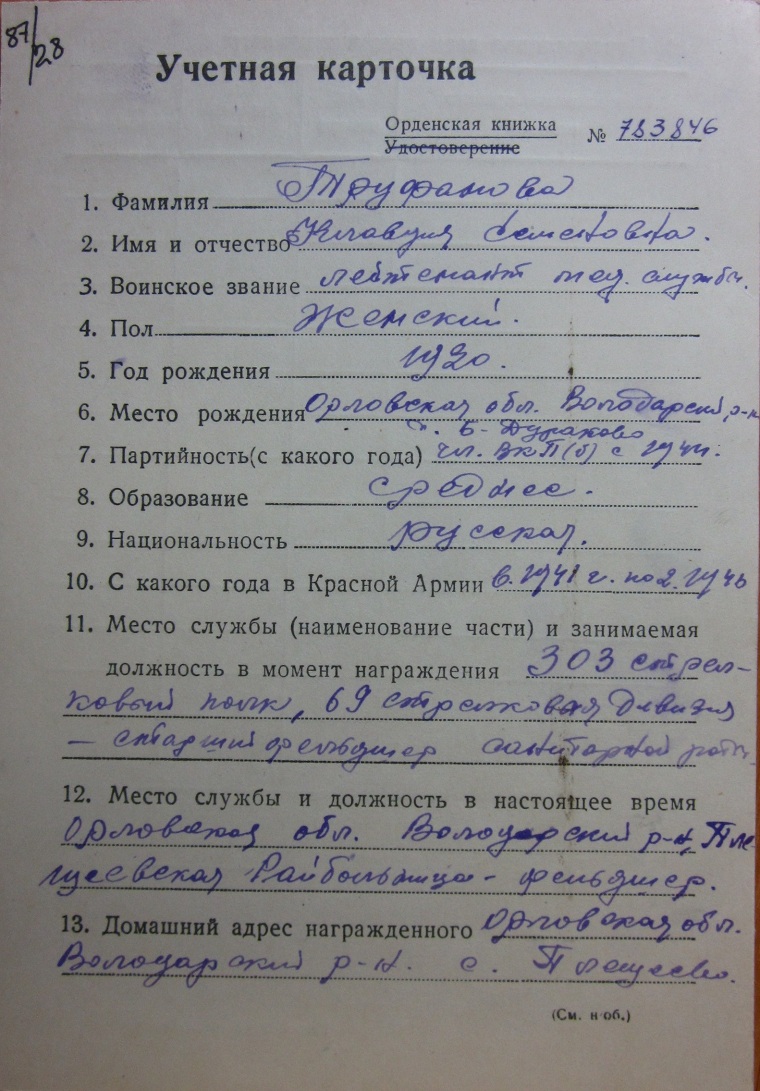 87/28
Учетная карточка
Орденская книжка
Удостоверение
№ 783846
1. Фамилия Труфанова
2. Имя и отчество Клавдия Семеновна.
3. Воинское звание лейтенант мед. службы.
4. Пол Женский.
5. Год рождения 1920.
6. Место рождения Орловская обл. Володарский р-н
с. Б-Дураково
7. Партийность(с какого года) чл. ВКП(б) с 1944.
8. Образование среднее.
9. Национальность русская.
10. С какого года в Красной Армии с. 1941 г. по 1946
11. Место службы (наименование части) и занимаемая
должность в момент награждения 303 стрел-
ковый полк, 69 стрелковая дивизия
– старший фельдшер санитарной роты.
12. Место службы и должность в настоящее время
Орловская обл. Володарский р-н, Пле
щеевская Райбольница - фельдшер.
13. Домашний адрес награжденного Орловская обл.
Володарский р-н. с. Плещеево.
(См. н об.)